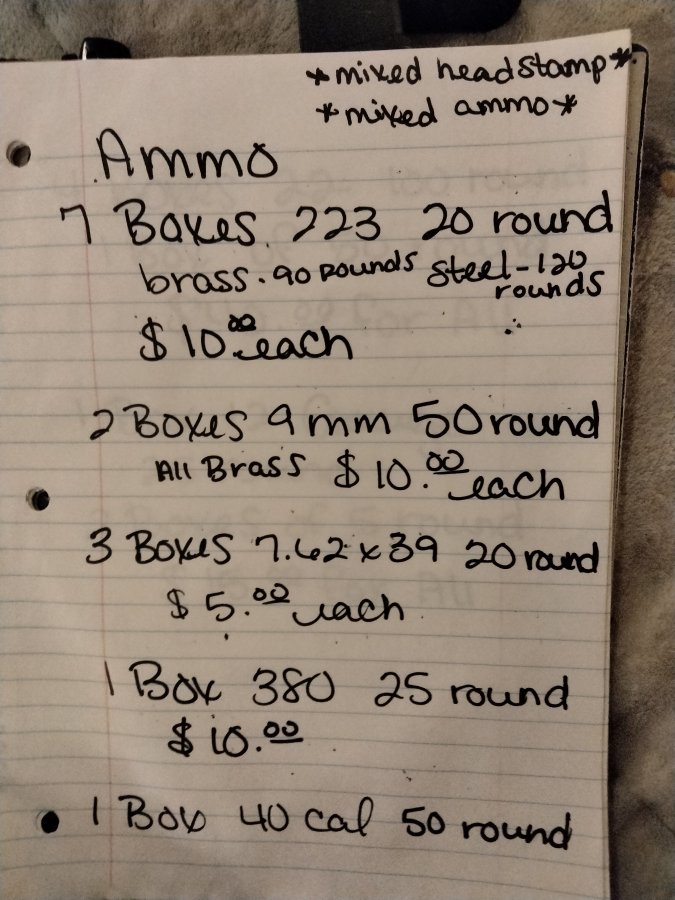 *mixed headstamp*
*mixed ammo*
Ammo
7 Boxes. 223 20 round
brass. 90 rounds steel-120
rounds
$10.00 each
2 Boxes 9mm 50 round
All Brass $10.00 each
3 Boxes 7.62x39 20 round
$5.00 each
1 Box 380 25 round
$10.00
1 Box 40 cal 50 round